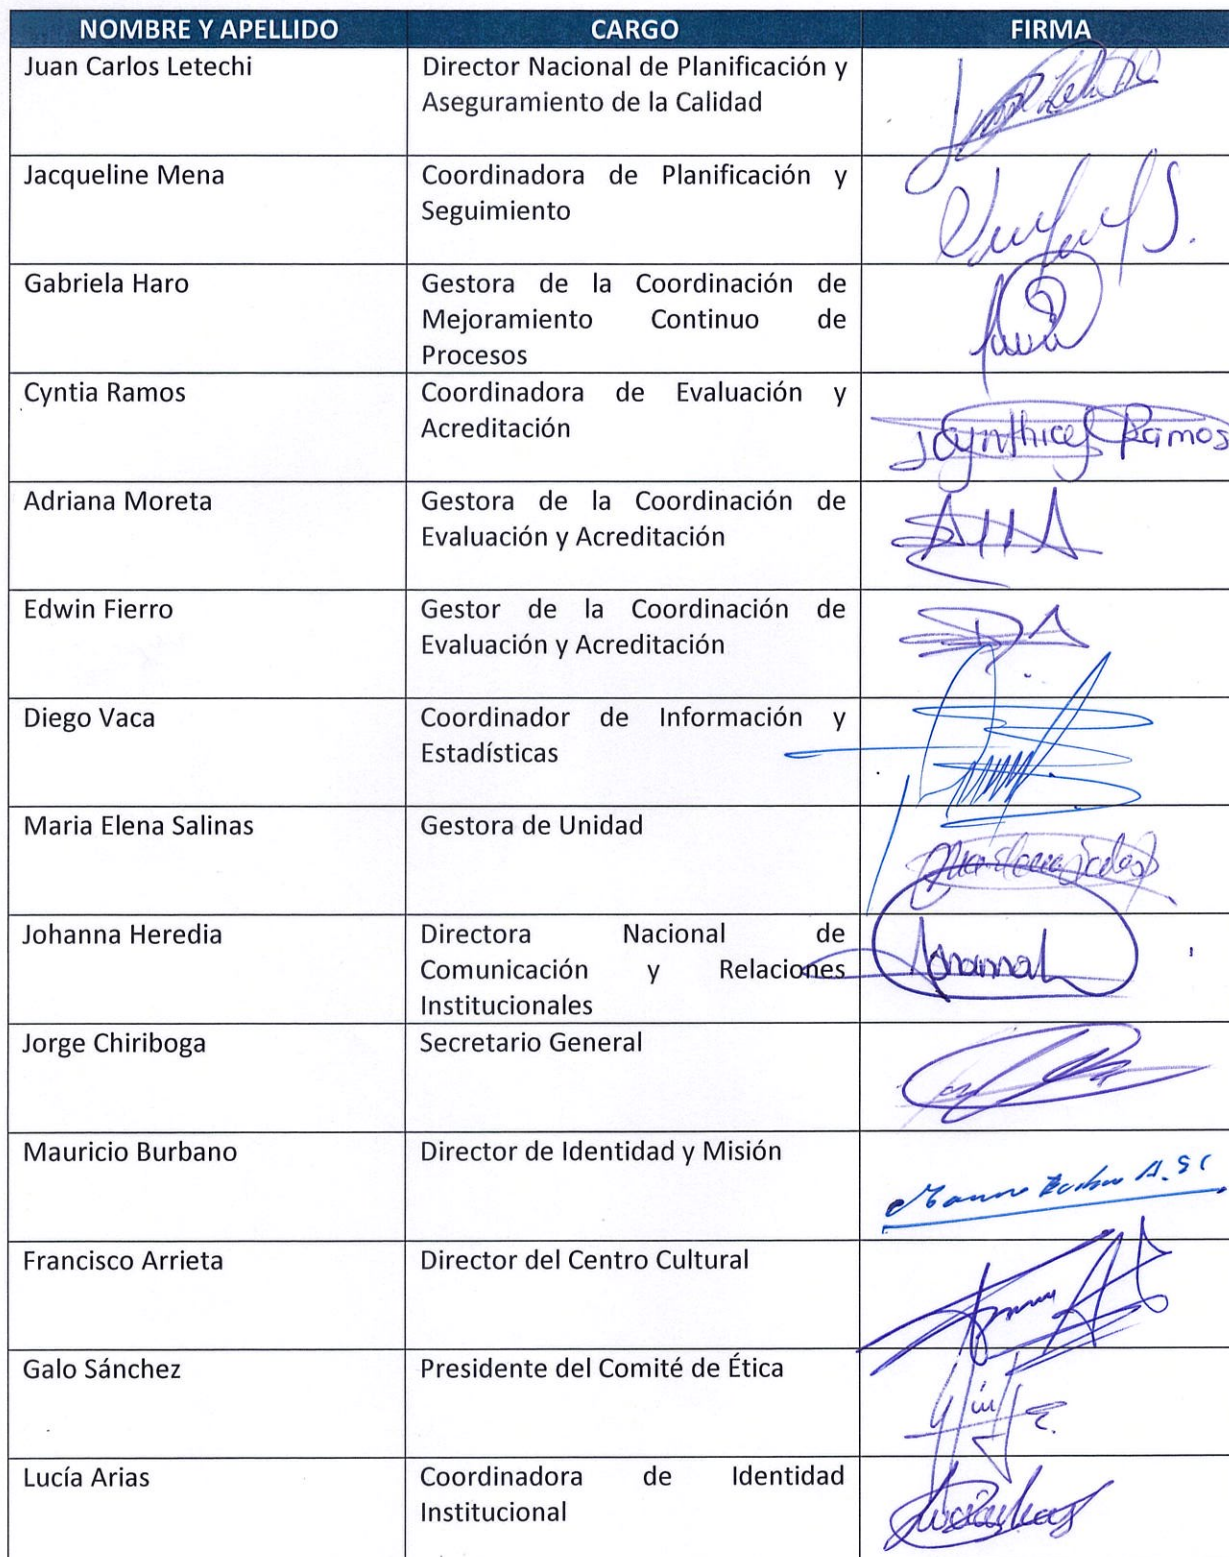 NOMBRE Y APELLIDO CARGO FIRMA
Juan Carlos Letechi Director Nacional de Planificación y
Aseguramiento de la Calidad
Jacqueline Mena Coordinadora de Planificación y
Seguimiento
Gabriela Haro Gestora de la Coordinación de
Mejoramiento Continuo de
Procesos
Cyntia Ramos Coordinadora de Evaluación y
Acreditación
Cynthia Ramos
Adriana Moreta Gestora de la Coordinación de
Evaluación y Acreditación
Edwin Fierro Gestor de la Coordinación de
Evaluación y Acreditación
Diego Vaca Coordinador de Información y
Estadísticas
Maria Elena Salinas Gestora de Unidad
Johanna Heredia Directora Nacional de
Comunicación y Relaciones
Institucionales
Jorge Chiriboga Secretario General
Mauricio Burbano Director de Identidad y Misión
Francisco Arrieta Director del Centro Cultural
Galo Sánchez Presidente del Comité de Ética
Lucía Arias Coordinadora de Identidad
Institucional